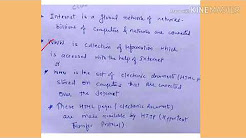 Made with
KINEMASTER
Internet is a global network of networks.
Billions of Computers & networks are connected
WWW is Collection of Information which
is accessed with the help of Internet
WWW is the set of electronic documents (HTML
stored on computers that are connected
over the Internet
These HTML pages (electronic documents)
are made available by HTTP (Hypertext
Transfer Protocol)